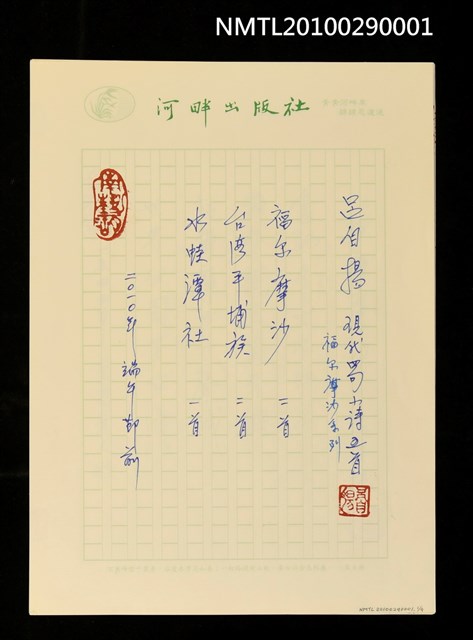 NMTL20100290001
河畔出版社
呂自揚 現代四句小詩五首
福尔摩沙系列
福尔摩沙 二首
台湾平埔族 二首
水蛙潭社 一首
二〇一〇年端午節前
NMTL20100290001